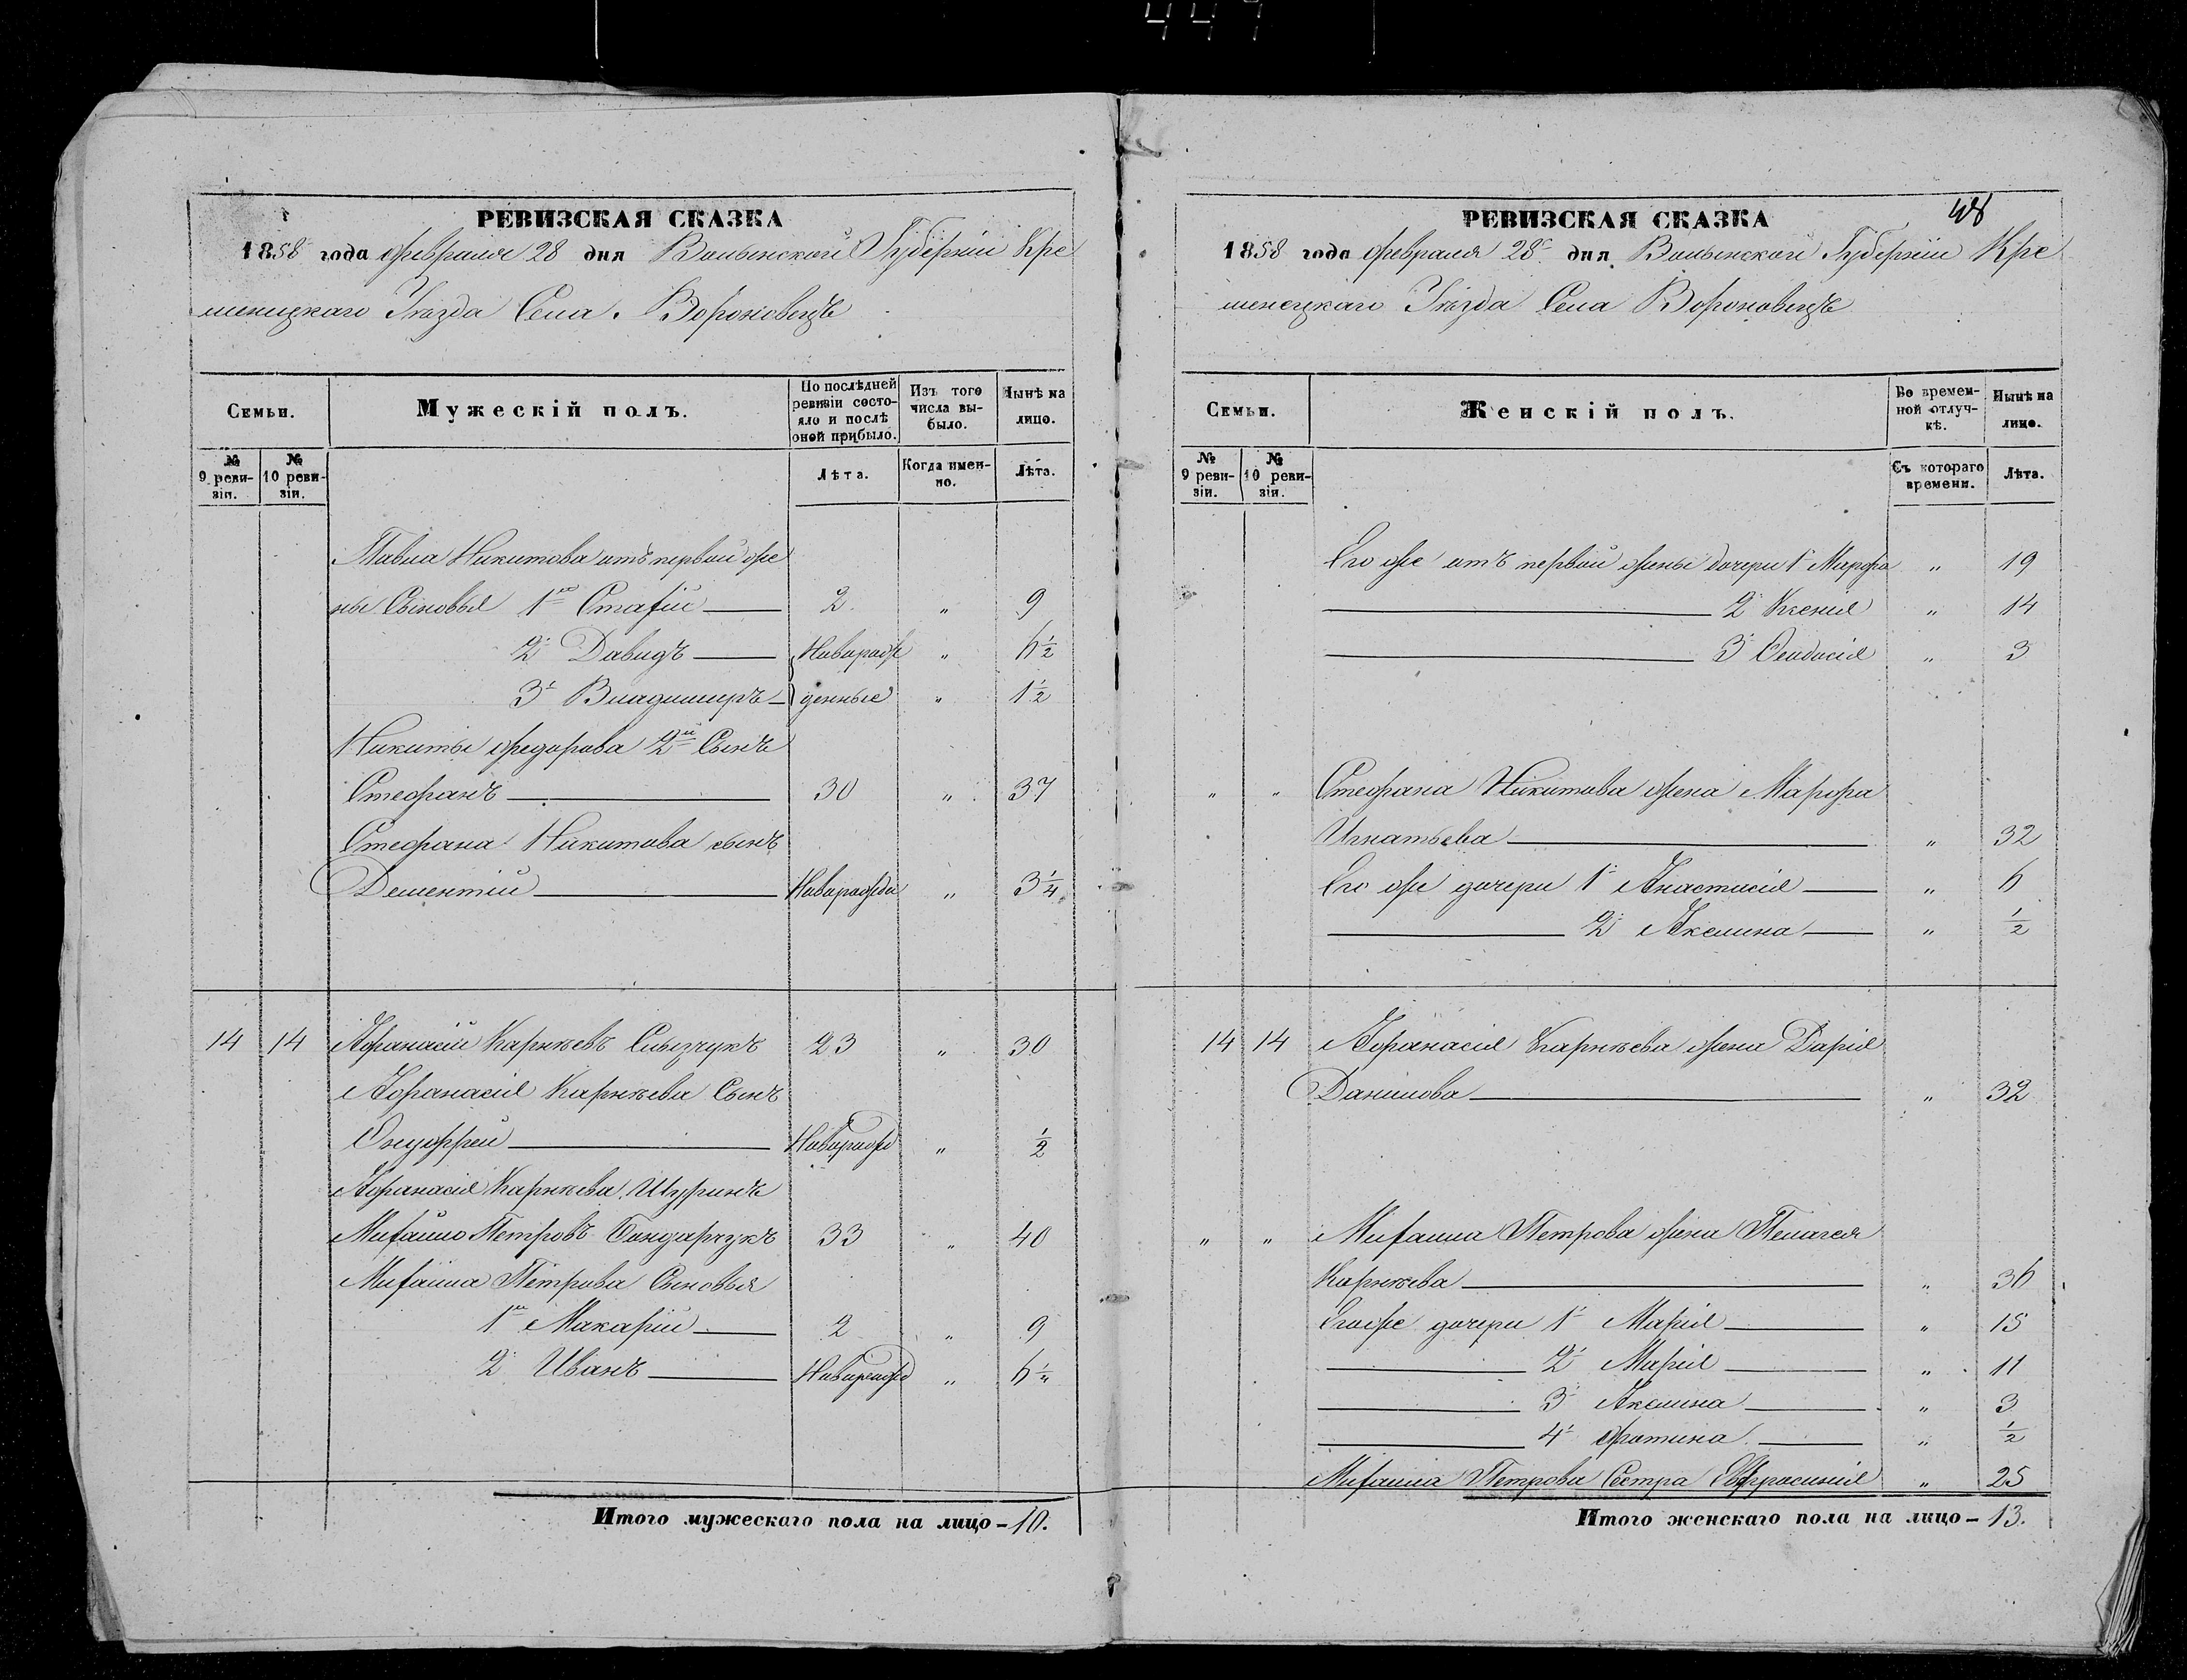 447
РЕВИЗСКАЯ СКАЗКА
1858 года февраля 28 дня Волынской Губерніи Кре
менецкаго Уѣзда Села Вороновецъ
Семьи.
Мужескій полъ.
По послѣдней ревизіи состояло и послѣ оной прибыло.
Изъ того числа выбыло.
Нынѣ на лицо.
№ 9 ревизіи.
№ 10 ревизіи.
Лѣта.
Когда именно.
Лѣта.
Павла Никитова отъ первой же
ны Сыновья 1й Стафій 2 " 9
2й Давидъ Новорож " 6½
3й Владимиръ денные " 1½
Никиты Федорова 2й Сынъ
Стефанъ 30 " 37
Стефана Никитова сынъ
Дементій Новорожде " 3¼
14 14 Афанасій Карнѣевъ 23 " 30
Афанасія Карнѣева Сынъ
Онуфрей Новорожд " ½
Афанасія Карнѣева Шуринъ
Михайло Петровъ Бондарчукъ 33 " 40
Михайла Петрова Сыновья
1й Макарій 2 " 9
2й Иванъ Новорожд " 6¼
Итого мужескаго пола на лицо – 10.
48
РЕВИЗСКАЯ СКАЗКА
1858 года февраля 28 дня Волынской Губерніи Кре
менецкаго Уѣзда Села Вороновецъ
Семьи.
Женскій полъ.
Во временной отлучкѣ.
Нынѣ на лицо.
№ 9 ревизіи.
№ 10 ревизіи.
Съ котораго времени.
Лѣта.
Его же отъ первой жены дочери 1 Марфа " 19
2 Ксенія " 14
3 Феодосія " 3
" " Стефана Никитова жена Марфа
Игнатьева " 32
Его же дочери 1 Анастасія " 6
2 Акелина " ½
14 14 Афанасія Карнѣева жена Дарія
Данилова " 32
" " Михайла Петрова жена Пелагея
Карнѣева " 36
Его же дочери 1 Марія " 15
2 Марія " 11
3 Акелина " 3
4 Фотина " ½
Михайла Петрова Сестра Евфросинія " 25
Итого женскаго пола на лицо – 13.